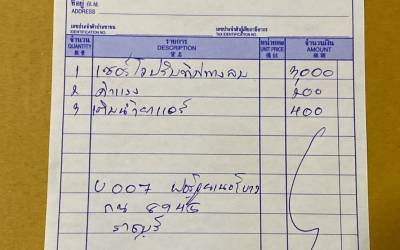 ที่อยู่
ADDRESS
เลขประจำตัวประชาชน เลขประจำตัวผู้เสียภาษีอากร
IDENTIFICATION NO. TAX IDENTIFICATION NO.
จำนวน รายการ หน่วยละ จำนวนเงิน
QUANTITY DESCRIPTION UNIT PRICE AMOUNT
1 เซอร์โวปรับทิศทางลม 3000
2 ค่าแรง 200
3 เติมน้ำยาแอร์ 400
U007
กน 8945
ราชบุรี